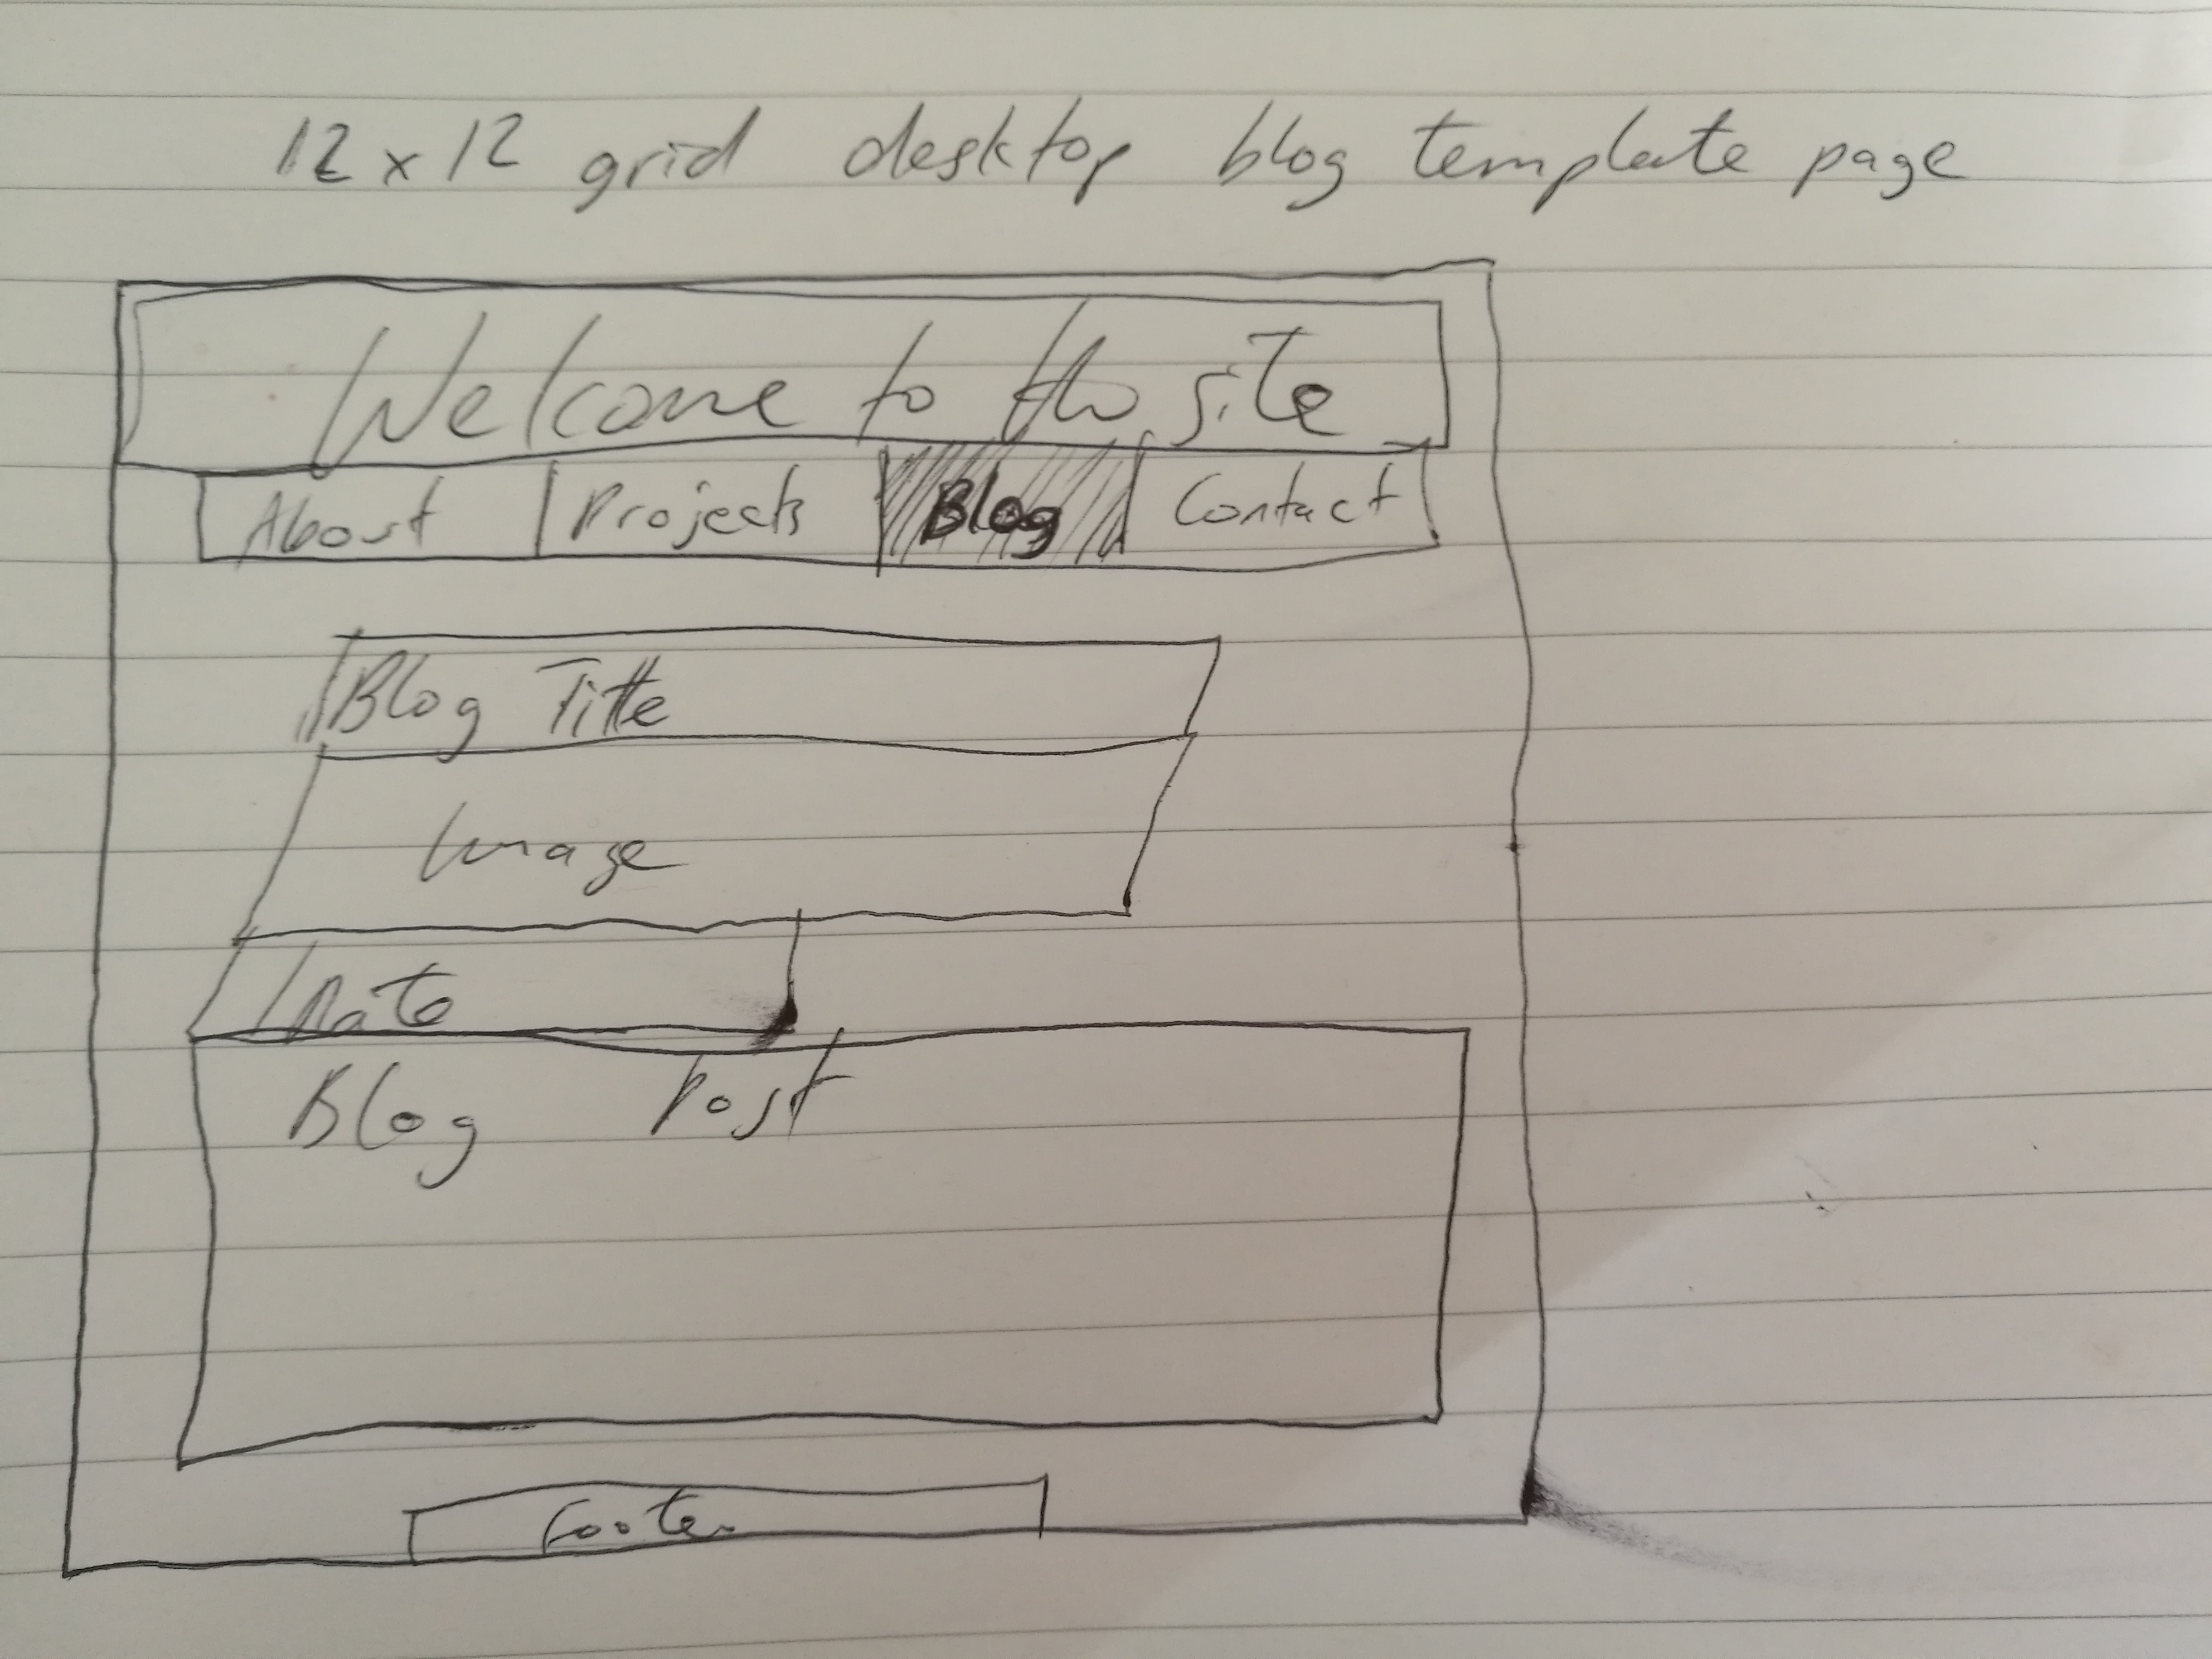 12 x 12 grid desktop blog template page
Welcome to the site
About Projects Blog Contact
Blog Title
Image
Date
Blog Post
Footer